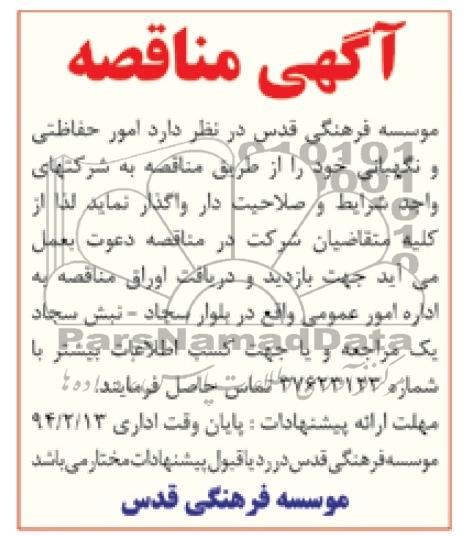 آگهی مناقصه
موسسه فرهنگی قدس در نظر دارد امور حفاظتی
و نگهبانی خود را از طریق مناقصه به شرکتهای
واجد شرایط و صلاحیت دار واگذار نماید لذا از
کلیه متقاضیان شرکت در مناقصه دعوت بعمل
می آید جهت بازدید و دریافت اوراق مناقصه به
اداره امور عمومی واقع در بلوار سجاد - نبش سجاد
ParsNamadData
یک مراجعه و یا جهت کسب اطلاعات بیشتر با
شماره ۳۷۶۲۳۱۲۳ تماس حاصل فرمایند.
مهلت ارائه پیشنهادات : پایان وقت اداری ۹۴/۲/۱۳
موسسه فرهنگی قدس در رد یا قبول پیشنهادات مختار می باشد
موسسه فرهنگی قدس